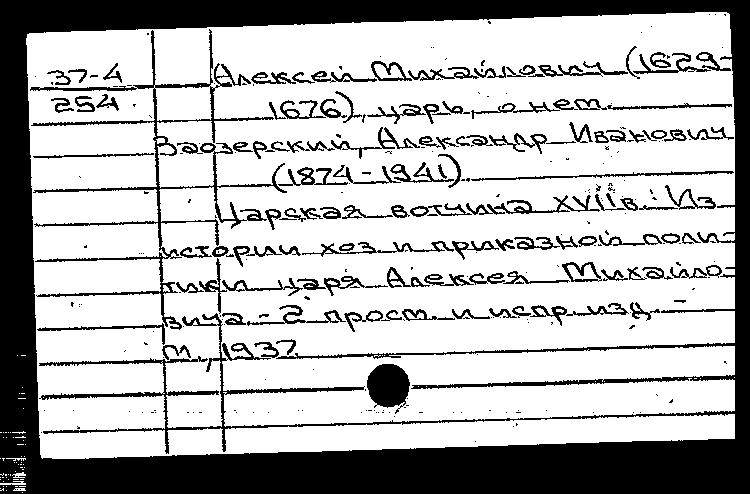 37-4
254.
Алексей Михайлович (1629-
1676), царь, о нем.
Заозерский, Александр Иванович
(1874-1941).
Царская вотчина XVII в.: Из
истории хоз и приказной поли-
тики царя Алексея Михайло-
вича.- 2 прост. и испр. изд. -
М., 1937.